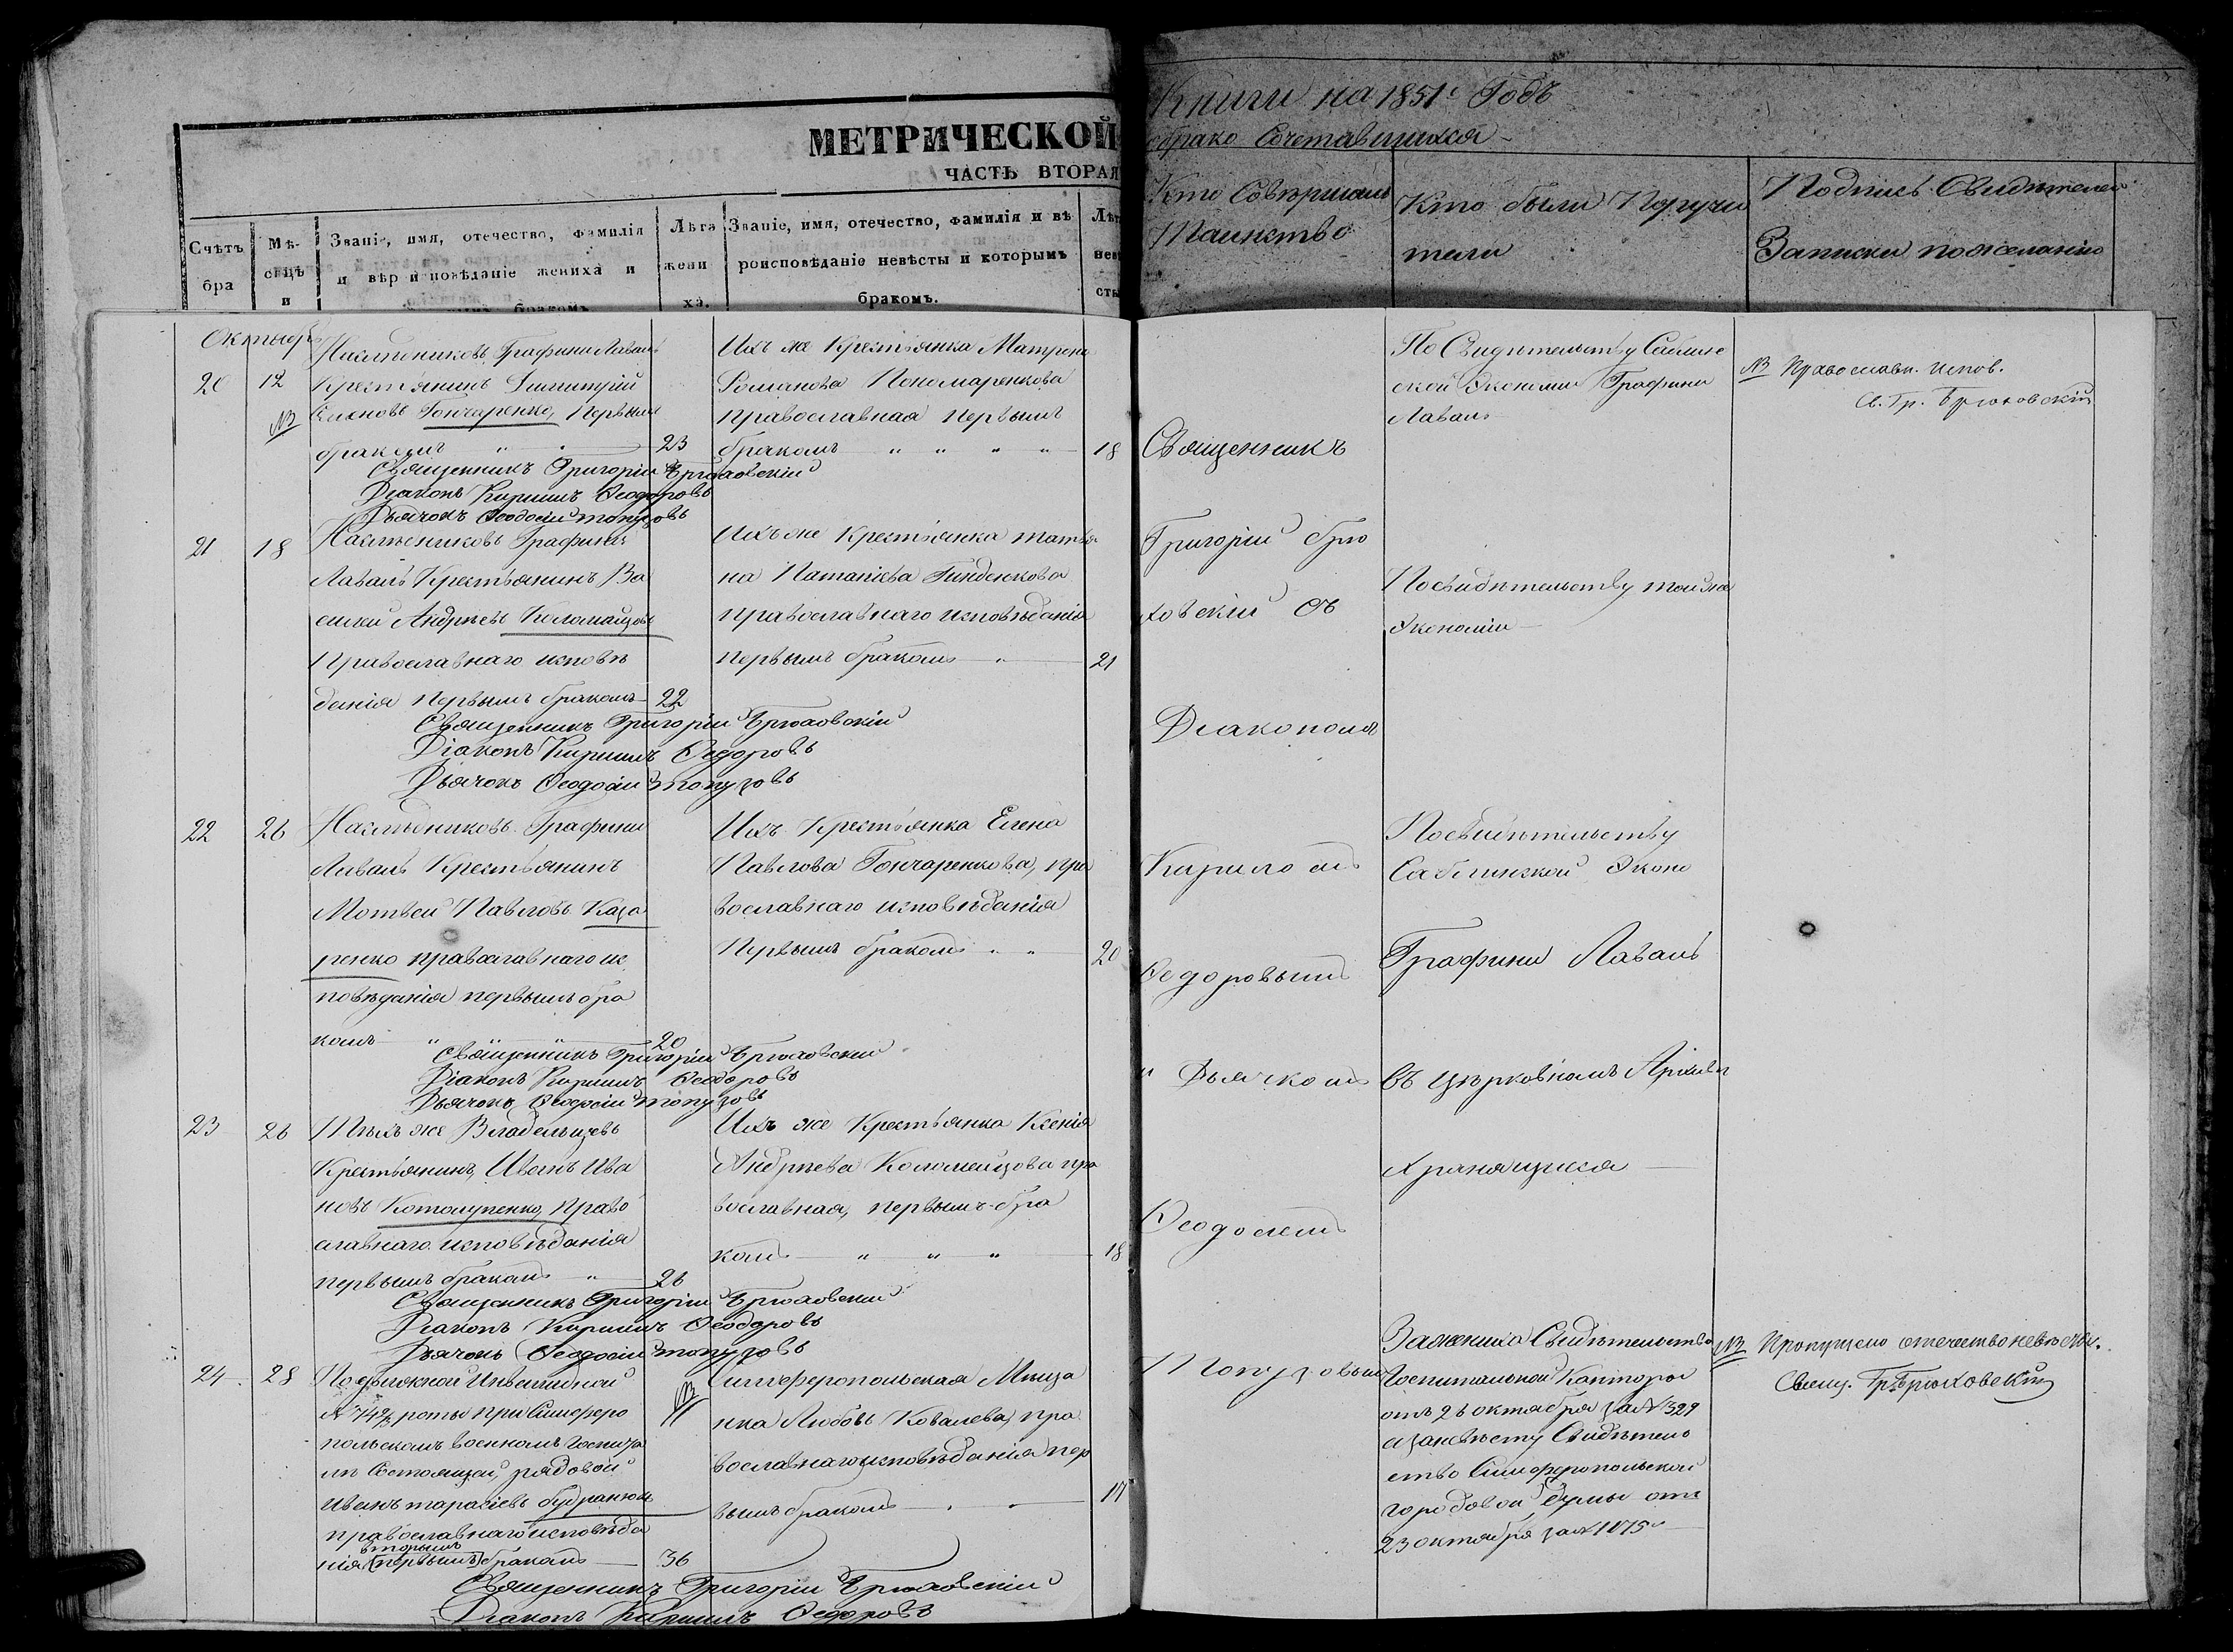 МЕТРИЧЕСКОЙ
ЧАСТЬ ВТОРАЯ
Книги на 1851й Годъ
о брако Сочетавшихся
Счѣтъ
бра
Мѣ-
сѣцъ
и
Званіе, имя, отечество, фамилія
и вѣроисповѣданіе жениха и
бракомъ.
Лѣта
жени
ха.
Званіе, имя, отечество, фамилія и вѣ
роисповѣданіе невѣсты и которымъ
бракомъ.
Лѣт
нев
сты
Кто Совершалъ
Таинство
Кто были Поручи
тели
Подпись Свидѣтелей
Записки по желанію
Октябрь
20
12
NB
Наслѣдниковъ Графини Лаваль
Крестьянинъ Димитрій
Гончаренко, первымъ
бракомъ " " 23
Священникъ Григорій Брюховскій
Діаконъ Кириллъ Ѳеодоровъ
Дьячокъ Ѳеодосій Топузовъ
Ихъ же Крестьянка Матрона
Романова Пономаренкова
православная первымъ
бракомъ " " " " 18
По Свидѣтельству Саблинс
ской Экономіи Графини
Лаваль
NB Православн. испов.
С. Гр. Брюховскій
21
18
Наслѣдниковъ Графини
Лаваль Крестьянинъ Ва
силій Андреевъ Коломайцовъ
Православнаго исповѣ
данія первымъ бракомъ 22
Священникъ Григорій Брюховскій
Діаконъ Кириллъ Ѳедоровъ
Дьячокъ Ѳеодосій Топузовъ
Ихъ же Крестьянка Татья
на Патапіева Гинденкова
православнаго исповѣданія
первымъ бракомъ " 21
По свидѣтельству той же
Экономіи
22
26
Наслѣдниковъ Графини
Лаваль Крестьянинъ
Матвей Павловъ Каза
ренко православнаго ис
повѣданія первымъ бра
комъ " " 20
Священникъ Григорій Брюховскій
Діаконъ Кириллъ Ѳеодоровъ
Дьячокъ Ѳеодосій Топузовъ
Ихъ Крестьянка Елена
Павлова Гончаренкова, пра
вославнаго исповѣданія
Первымъ бракомъ " " 20
По свидѣтельству
Саблинской Эконо
Графини Лаваль
въ церковномъ Архивѣ
хранящися
23
26
Тѣхъ же Владельцевъ
Крестьянинъ, Иванъ Ива
новъ Котолупенко, Право
славнаго исповѣданія
первымъ бракомъ " 26
Священникъ Григорій Брюховскій
Діаконъ Кириллъ Ѳеодоровъ
Дьячокъ Ѳеодосій Топузовъ
Ихъ же Крестьянка Ксенія
Андреева Коломейцова пра
вославная, первымъ бра
комъ " " " 18
24.
28
Подвижной Инвалидной
роты при Симферо
польскомъ военномъ Госпита
лѣ Состоящей, рядовой
Иванъ Тарасіевъ
православнаго исповѣда
вторымъ
нія (первымъ) бракомъ 36
Священникъ Григорій Брюховскій
Діаконъ Кириллъ Ѳедоровъ
NB
Симферопольская Мѣща
нка Любовь Ковалева, пра
вославнаго исповѣданія пер
вымъ бракомъ 17
За жениха Свидѣтельство
Госпитальной Конторы
отъ 26 октября за № 329
а за невѣсту Свидѣтель
ство Симферопольской
городовой думы отъ
23 октября за № 1075
NB Пропущено отечество невѣсты.
Свящ. Гр. Брюховскій
Священникъ
Григорій Брю
ховскій съ
Діакономъ
Кириломъ
Ѳедоровымъ
" Дьячкомъ
Ѳеодосіемъ
Топузовымъ